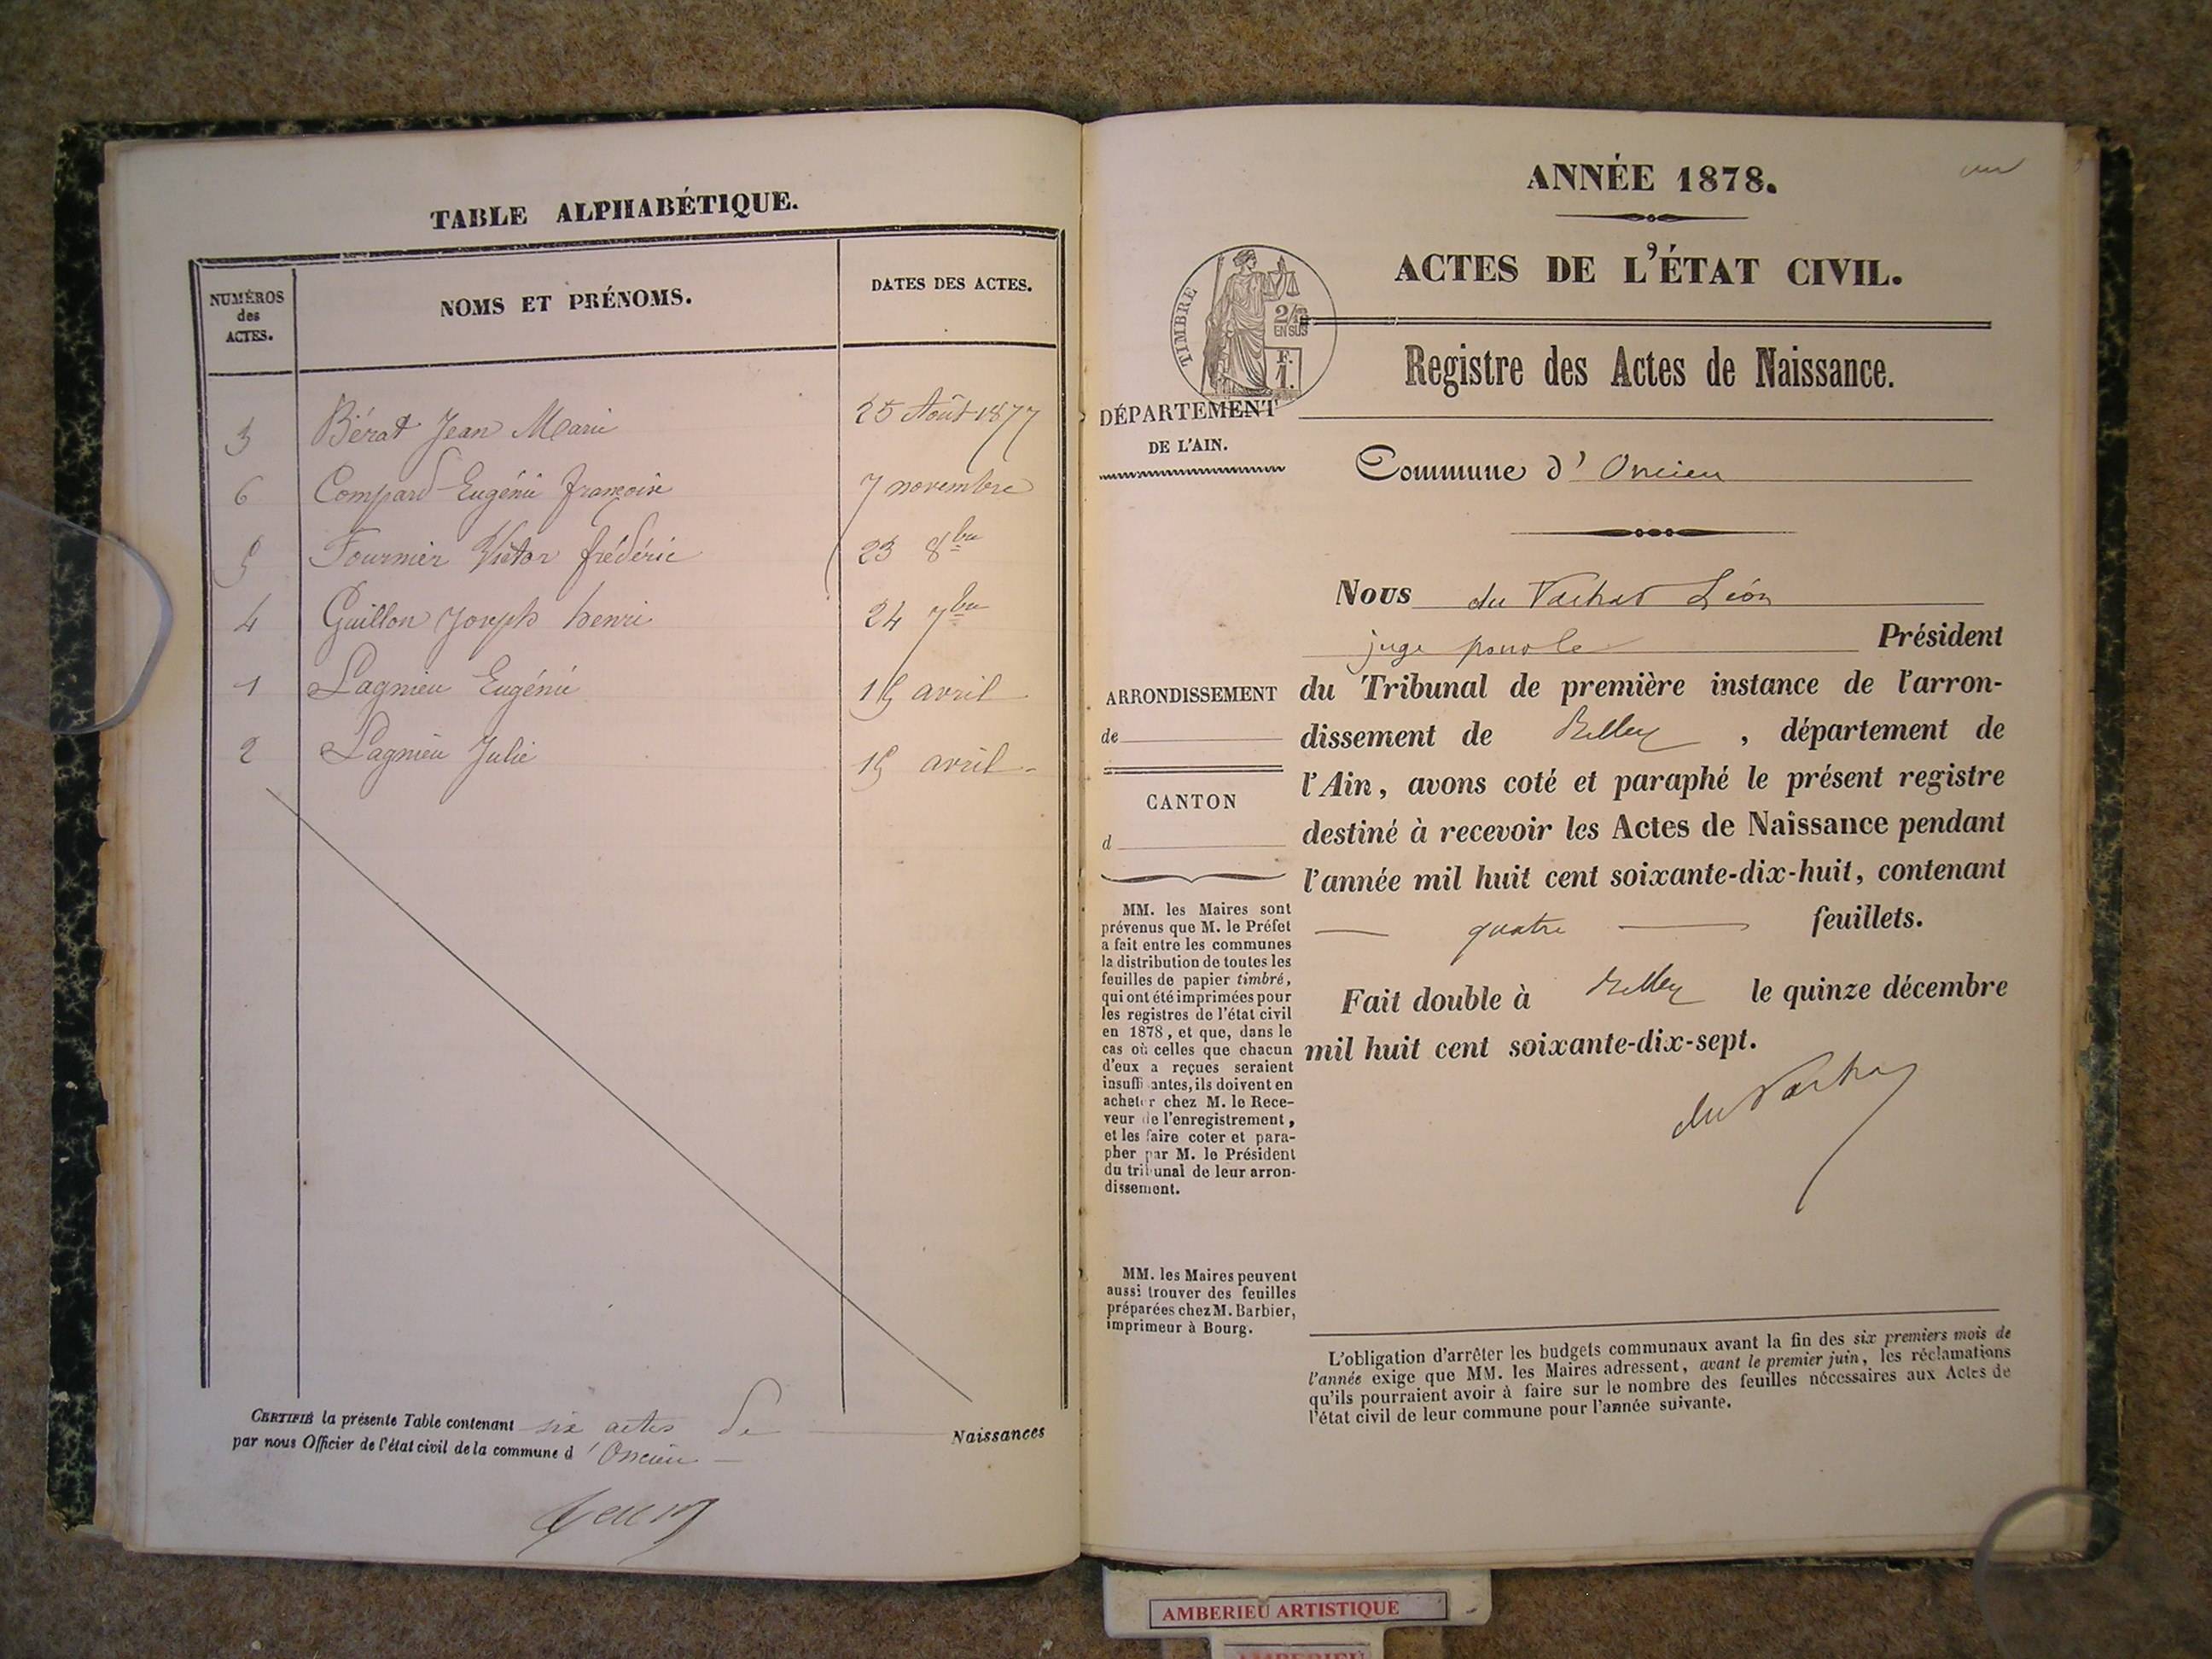 TABLE ALPHABÉTIQUE.
NUMÉROS des ACTES.
NOMS ET PRÉNOMS.
DATES DES ACTES.
3 Bérat Jean Marie 25 Août 1877
6 Compard Eugénie françoise 7 novembre
5 Fournier Victor frédéric 23 8bre
4 Guillon Joseph henri 24 7bre
1 Lagnieu Eugénie 15 avril
2 Lagnieu Julie 15 avril
CERTIFIÉ la présente Table contenant six actes de Naissances
par nous Officier de l'état civil de la commune d'Oncieu
ANNÉE 1878.
ACTES DE L'ÉTAT CIVIL.
TIMBRE
2/10
EN SUS
F.
1.
Registre des Actes de Naissance.
DÉPARTEMENT
DE L'AIN.
Commune d'Oncieu
Nous du Vachat Léon
juge pour le Président
du Tribunal de première instance de l'arron-
dissement de Belley, département de
l'Ain, avons coté et paraphé le présent registre
destiné à recevoir les Actes de Naissance pendant
l'année mil huit cent soixante-dix-huit, contenant
quatre feuillets.
Fait double à Belley le quinze décembre
mil huit cent soixante-dix-sept.
du Vachat
ARRONDISSEMENT
de
CANTON
d
MM. les Maires sont
prévenus que M. le Préfet
a fait entre les communes
la distribution de toutes les
feuilles de papier timbré,
qui ont été imprimées pour
les registres de l'état civil
en 1878, et que, dans le
cas où celles que chacun
d'eux a reçues seraient
insuffisantes, ils doivent en
acheter chez M. le Rece-
veur de l'enregistrement,
et les faire coter et para-
pher par M. le Président
du tribunal de leur arron-
dissement.
MM. les Maires peuvent
aussi trouver des feuilles
préparées chez M. Barbier,
imprimeur à Bourg.
L'obligation d'arrêter les budgets communaux avant la fin des six premiers mois de
l'année exige que MM. les Maires adressent, avant le premier juin, les réclamations
qu'ils pourraient avoir à faire sur le nombre des feuilles nécessaires aux Actes de
l'état civil de leur commune pour l'année suivante.
AMBERIEU ARTISTIQUE
AMBERIEU